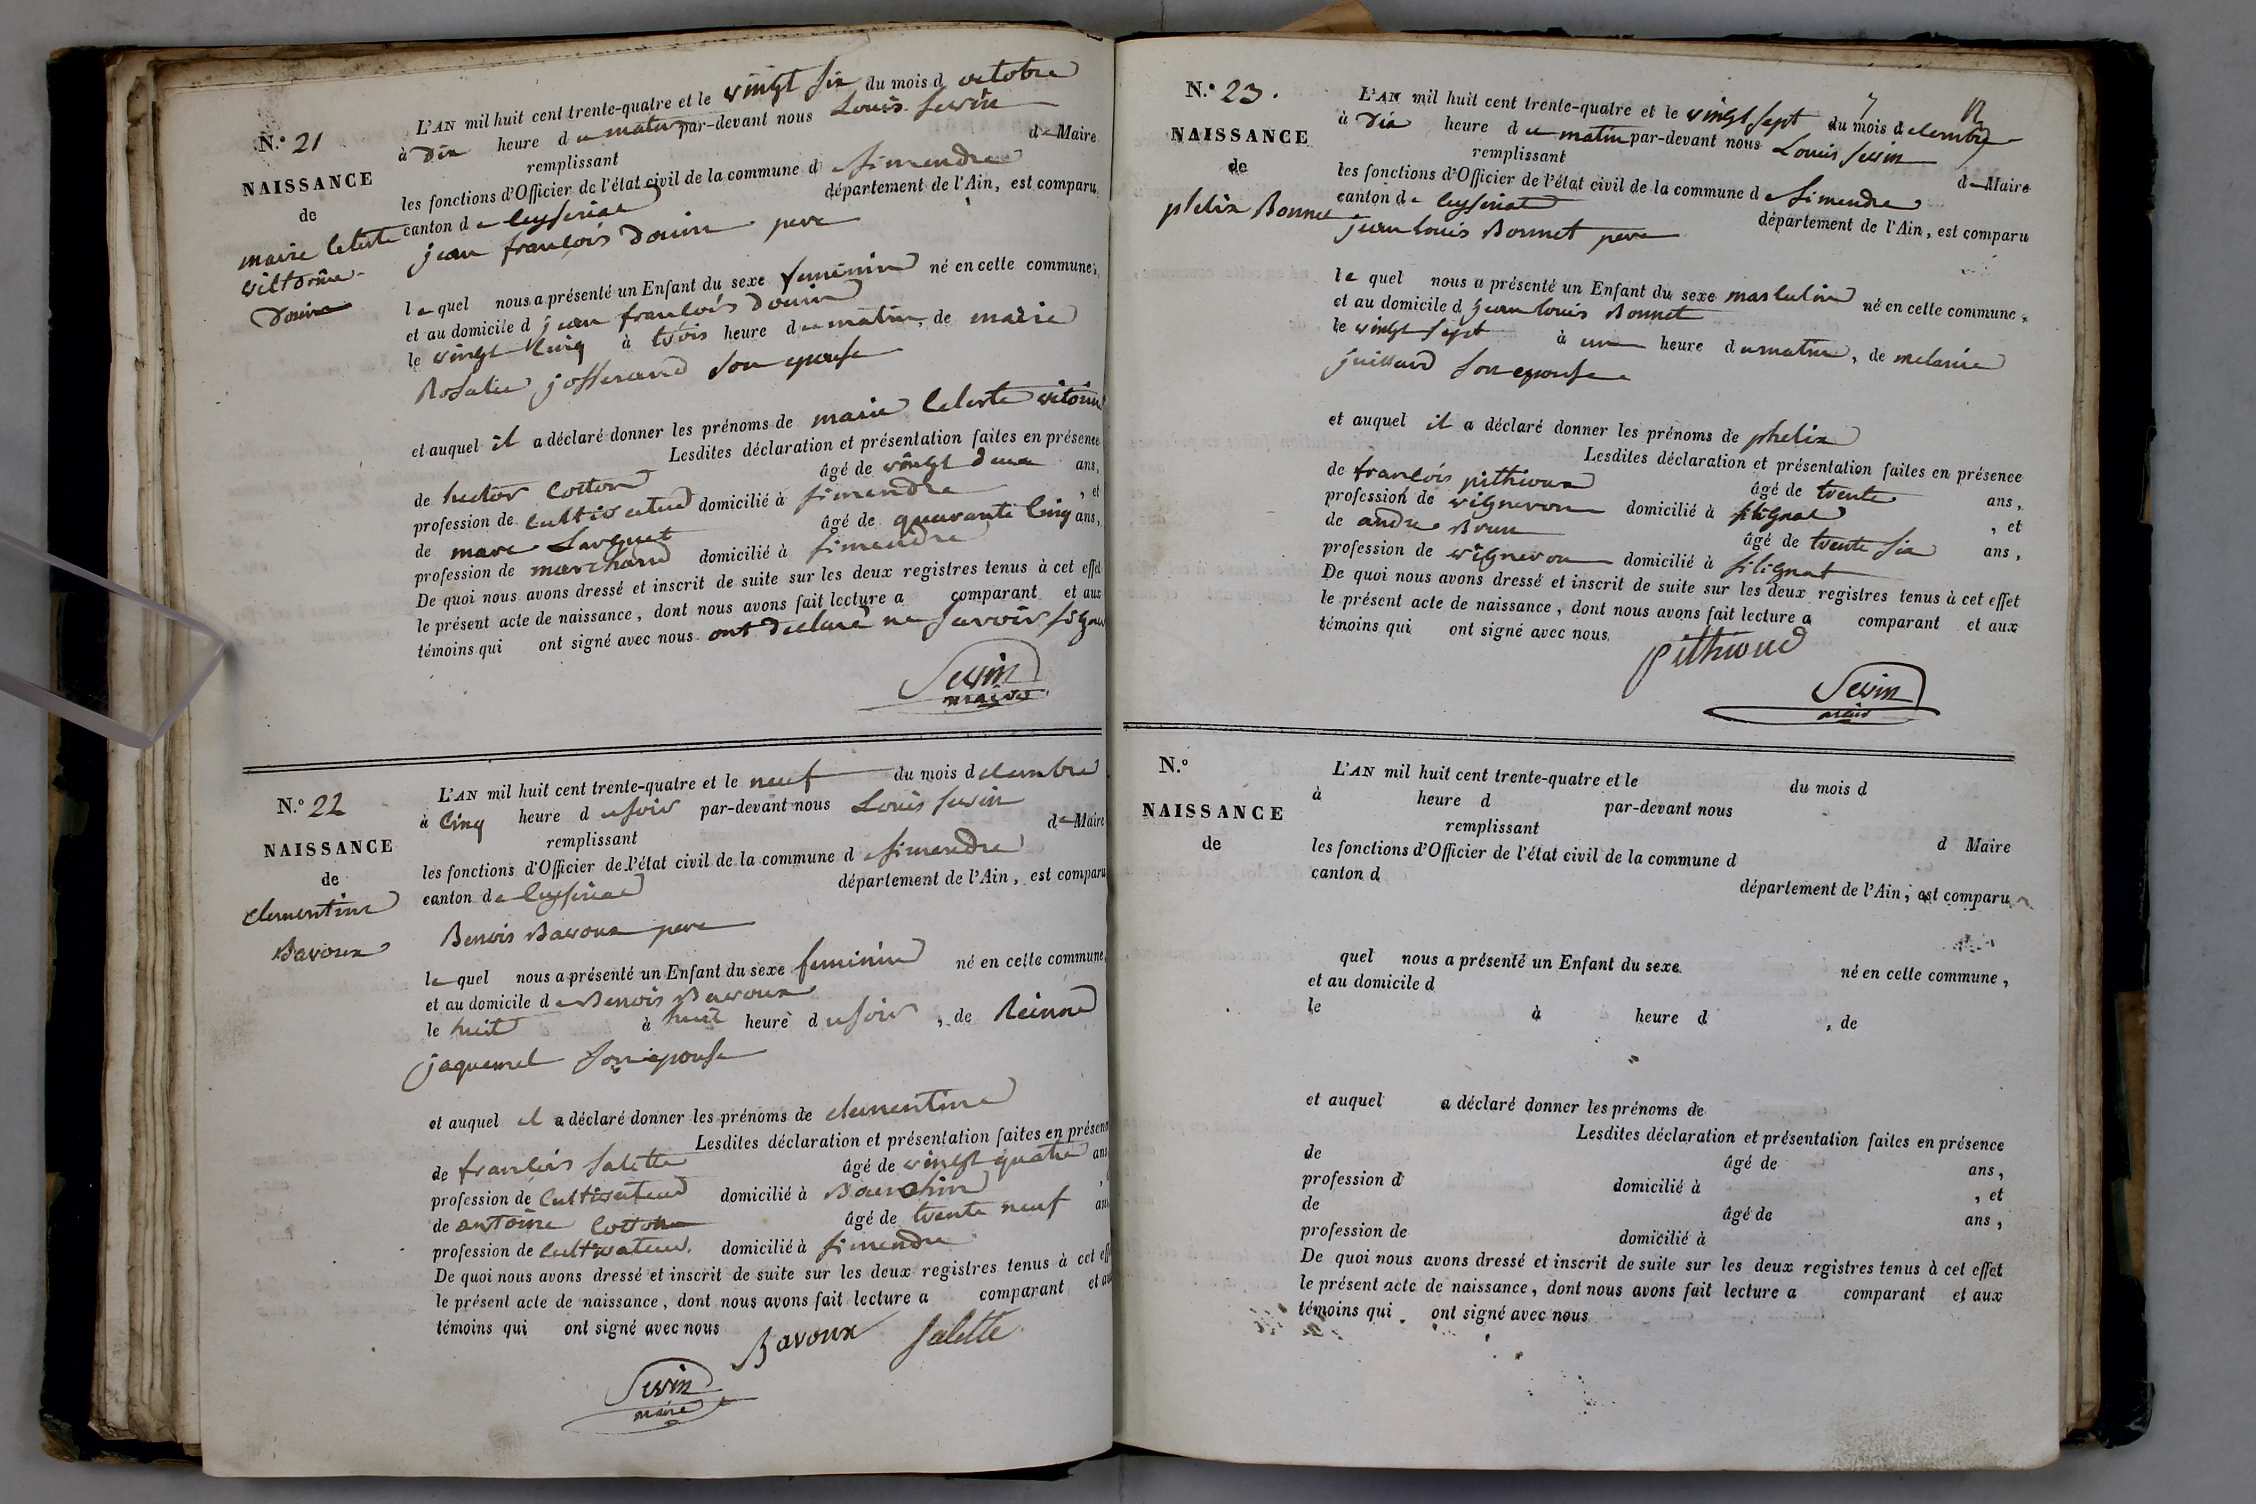 N.° 21
NAISSANCE
de
marie celeste
victorine
Douin
L'AN mil huit cent trente-quatre et le vingt six du mois d octobre
à Dix heure d u matin par-devant nous Louis Sevin
remplissant de Maire
les fonctions d'Officier de l'état civil de la commune d e Simendre
canton d e Ceyseriat département de l'Ain, est comparu
jean françois Douin pere
le quel nous a présenté un Enfant du sexe feminin né en cette commune,
et au domicile d jean françois Douin
le vingt cinq à trois heure d u matin, de marie
Rosalie josserand son epouse
et auquel il a déclaré donner les prénoms de marie Celeste vitorine
Lesdites déclaration et présentation faites en présence
de hector Cotton âgé de vingt deux ans,
profession de Cultivateur domicilié à simendre , et
de marc Larguet âgé de quarante Cinq ans,
profession de marchand domicilié à simendre
De quoi nous avons dressé et inscrit de suite sur les deux registres tenus à cet effet
le présent acte de naissance, dont nous avons fait lecture a comparant et aux
témoins qui ont signé avec nous ont declaré ne savoir signer
Sevin
maire
N.° 22
NAISSANCE
de
clementine
Bavoux
L'AN mil huit cent trente-quatre et le neuf du mois d ecembre
à Cinq heure d u soir par-devant nous Louis Sevin
remplissant de Maire
les fonctions d'Officier de l'état civil de la commune d e Simendre
canton de Ceyseriat département de l'Ain, est comparu
Benois Bavoux pere
le quel nous a présenté un Enfant du sexe feminin né en cette commune,
et au domicile d e Benois Bavoux
le huit à huit heure d u soir , de Reinne
jaquemet son epouse
et auquel il a déclaré donner les prénoms de clementine
Lesdites déclaration et présentation faites en présen
de françois Salette âgé de vingt quatre ans
profession de Cultivateur domicilié à ,
de antoine Cotton âgé de trente neuf ans
profession de Cultivateur domicilié à simendre
De quoi nous avons dressé et inscrit de suite sur les deux registres tenus à cet eff
le présent acte de naissance, dont nous avons fait lecture a comparant et au
témoins qui ont signé avec nous
Bavoux Salette
Sevin
maire
N.° 23.
NAISSANCE
de
phelix Bonnet
L'AN mil huit cent trente-quatre et le vingt sept du mois d ecembre
à Dix heure d u matin par-devant nous Louis Sevin
remplissant de Maire
les fonctions d'Officier de l'état civil de la commune d e Simendre
canton d e Ceyseriat département de l'Ain, est comparu
jean louis Bonnet pere
le quel nous a présenté un Enfant du sexe masculin né en cette commune,
et au domicile d jean louis Bonnet
le vingt sept à une heure d u matin, de melanie
juillard son epouse
et auquel il a déclaré donner les prénoms de phelix
Lesdites déclaration et présentation faites en présence
de françois pithioux âgé de trente ans,
profession de vigneron domicilié à silignat , et
de andre Brun âgé de trente six ans,
profession de vigneron domicilié à silignat
De quoi nous avons dressé et inscrit de suite sur les deux registres tenus à cet effet
le présent acte de naissance, dont nous avons fait lecture a comparant et aux
témoins qui ont signé avec nous
pithioud
Sevin
maire
N.°
NAISSANCE
de
L'AN mil huit cent trente-quatre et le du mois d
à heure d par-devant nous
remplissant d Maire
les fonctions d'Officier de l'état civil de la commune d
canton d département de l'Ain, est comparu
quel nous a présenté un Enfant du sexe né en cette commune,
et au domicile d
le à heure d , de
et auquel a déclaré donner les prénoms de
Lesdites déclaration et présentation faites en présence
de âgé de ans,
profession d domicilié à , et
de âgé de ans,
profession de domicilié à
De quoi nous avons dressé et inscrit de suite sur les deux registres tenus à cet effet
le présent acte de naissance, dont nous avons fait lecture a comparant et aux
témoins qui ont signé avec nous